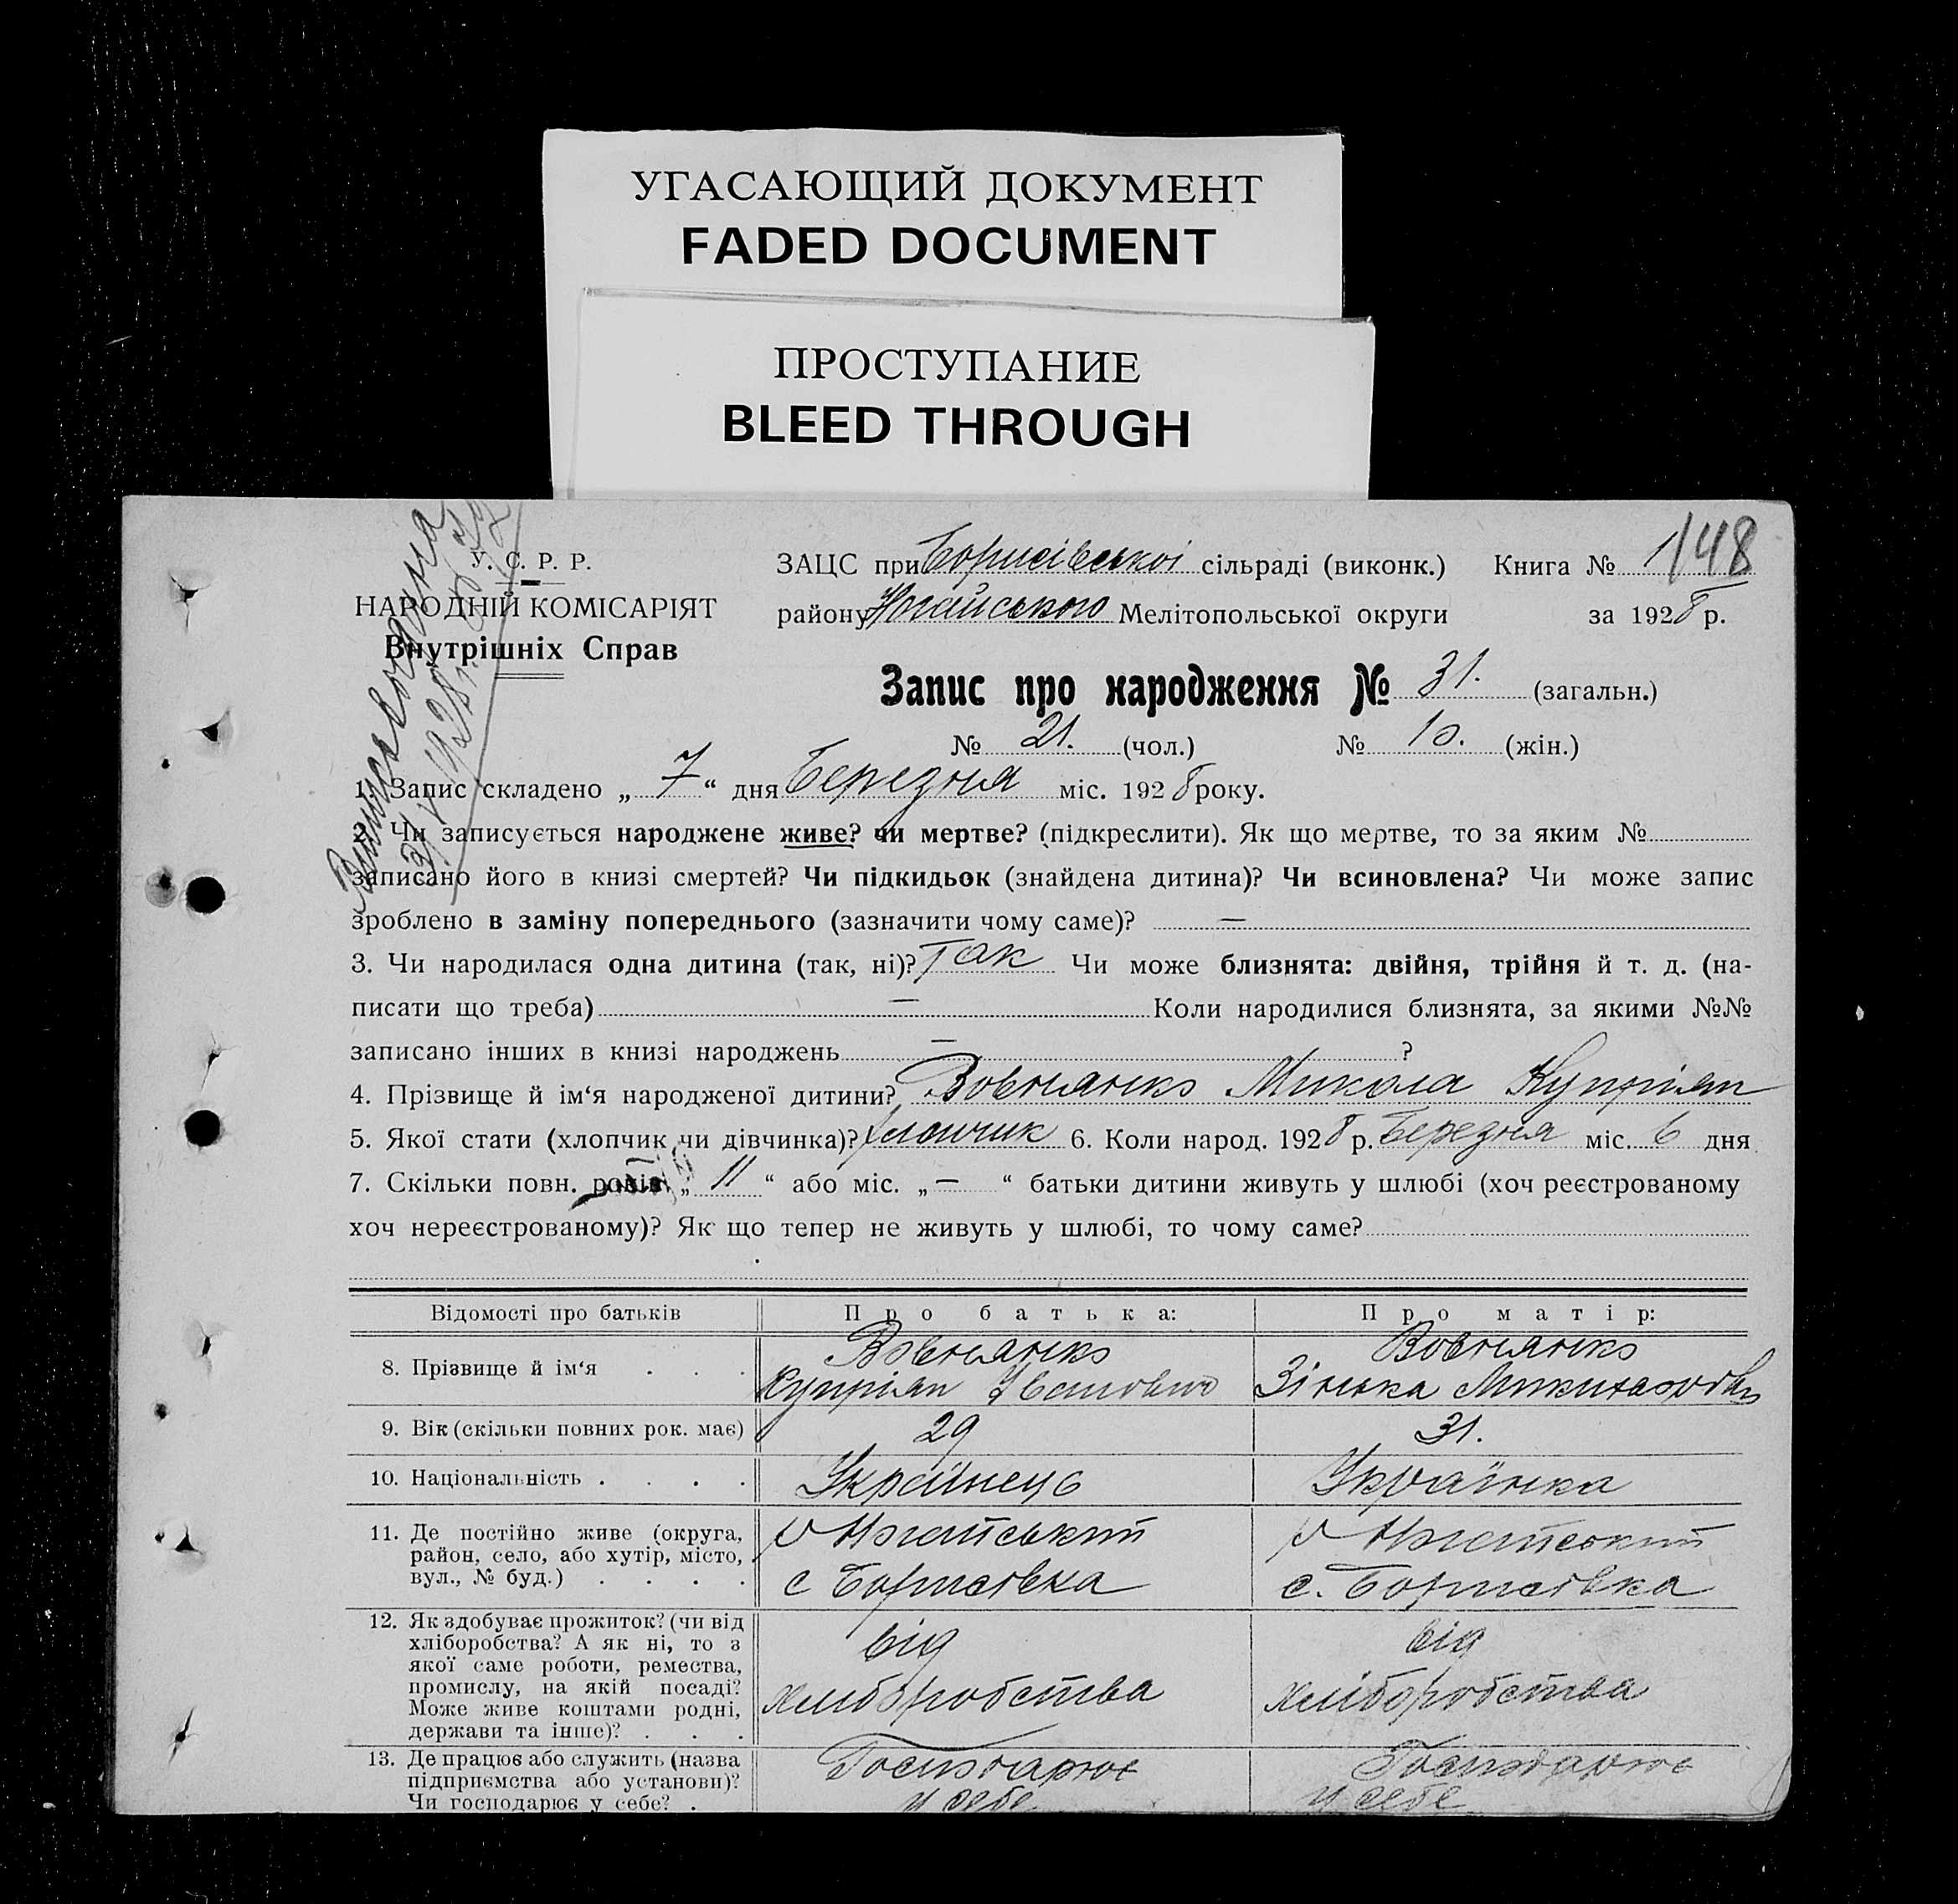 УГАСАЮЩИЙ ДОКУМЕНТ
FADED DOCUMENT
ПРОСТУПАНИЕ
BLEED THROUGH
У. С. Р. Р.
НАРОДНІЙ КОМІСАРІЯТ
Внутрішніх Справ
ЗАЦС при Борисівської сільраді (виконк.) Книга № 1/48
району Ногайського Мелітопольської округи за 1928 р.
Запис про народження № 31. (загальн.)
№ 21. (чол.) № 10. (жін.)
1. Запис складено „ 7 “ дня Березня міс. 1928 року.
2. Чи записується народжене живе? чи мертве? (підкреслити). Як що мертве, то за яким №
записано його в книзі смертей? Чи підкидьок (знайдена дитина)? Чи всиновлена? Чи може запис
зроблено в заміну попереднього (зазначити чому саме)? —
3. Чи народилася одна дитина (так, ні)? Так Чи може близнята: двійня, трійня й т. д. (на-
писати що треба) — Коли народилися близнята, за якими №№
записано інших в книзі народжень — ?
4. Прізвище й ім‘я народженої дитини? Вовнянко Микола Купріян
5. Якої стати (хлопчик чи дівчинка)? Хлопчик 6. Коли народ. 1928 р. Березня міс. 6 дня
7. Скільки повн. років „ 11 “ або міс. „ — “ батьки дитини живуть у шлюбі (хоч реєстрованому
хоч нереєстрованому)? Як що тепер не живуть у шлюбі, то чому саме?
Відомості про батьків Про батька: Про матір:
8. Прізвище й ім‘я . . . Вовнянко Купріян Іванович Вовнянко Зінька
9. Вік (скільки повних рок. має) 29 31.
10. Національність . . . . Українець Українка
11. Де постійно живе (округа,
район, село, або хутір, місто,
вул., № буд.) . . . .
р Ногайський
с Борисівка
р Ногайський
с. Борисівка
12. Як здобуває прожиток? (чи від
хліборобства? А як ні, то з
якої саме роботи, ремества,
промислу, на якій посаді?
Може живе коштами родні,
держави та інше)? . . .
від
хліборобства
від
хліборобства
13. Де працює або служить (назва
підприємства або установи)?
Чи господарює у себе? .
Господарює
у себе
Господарює
у себе